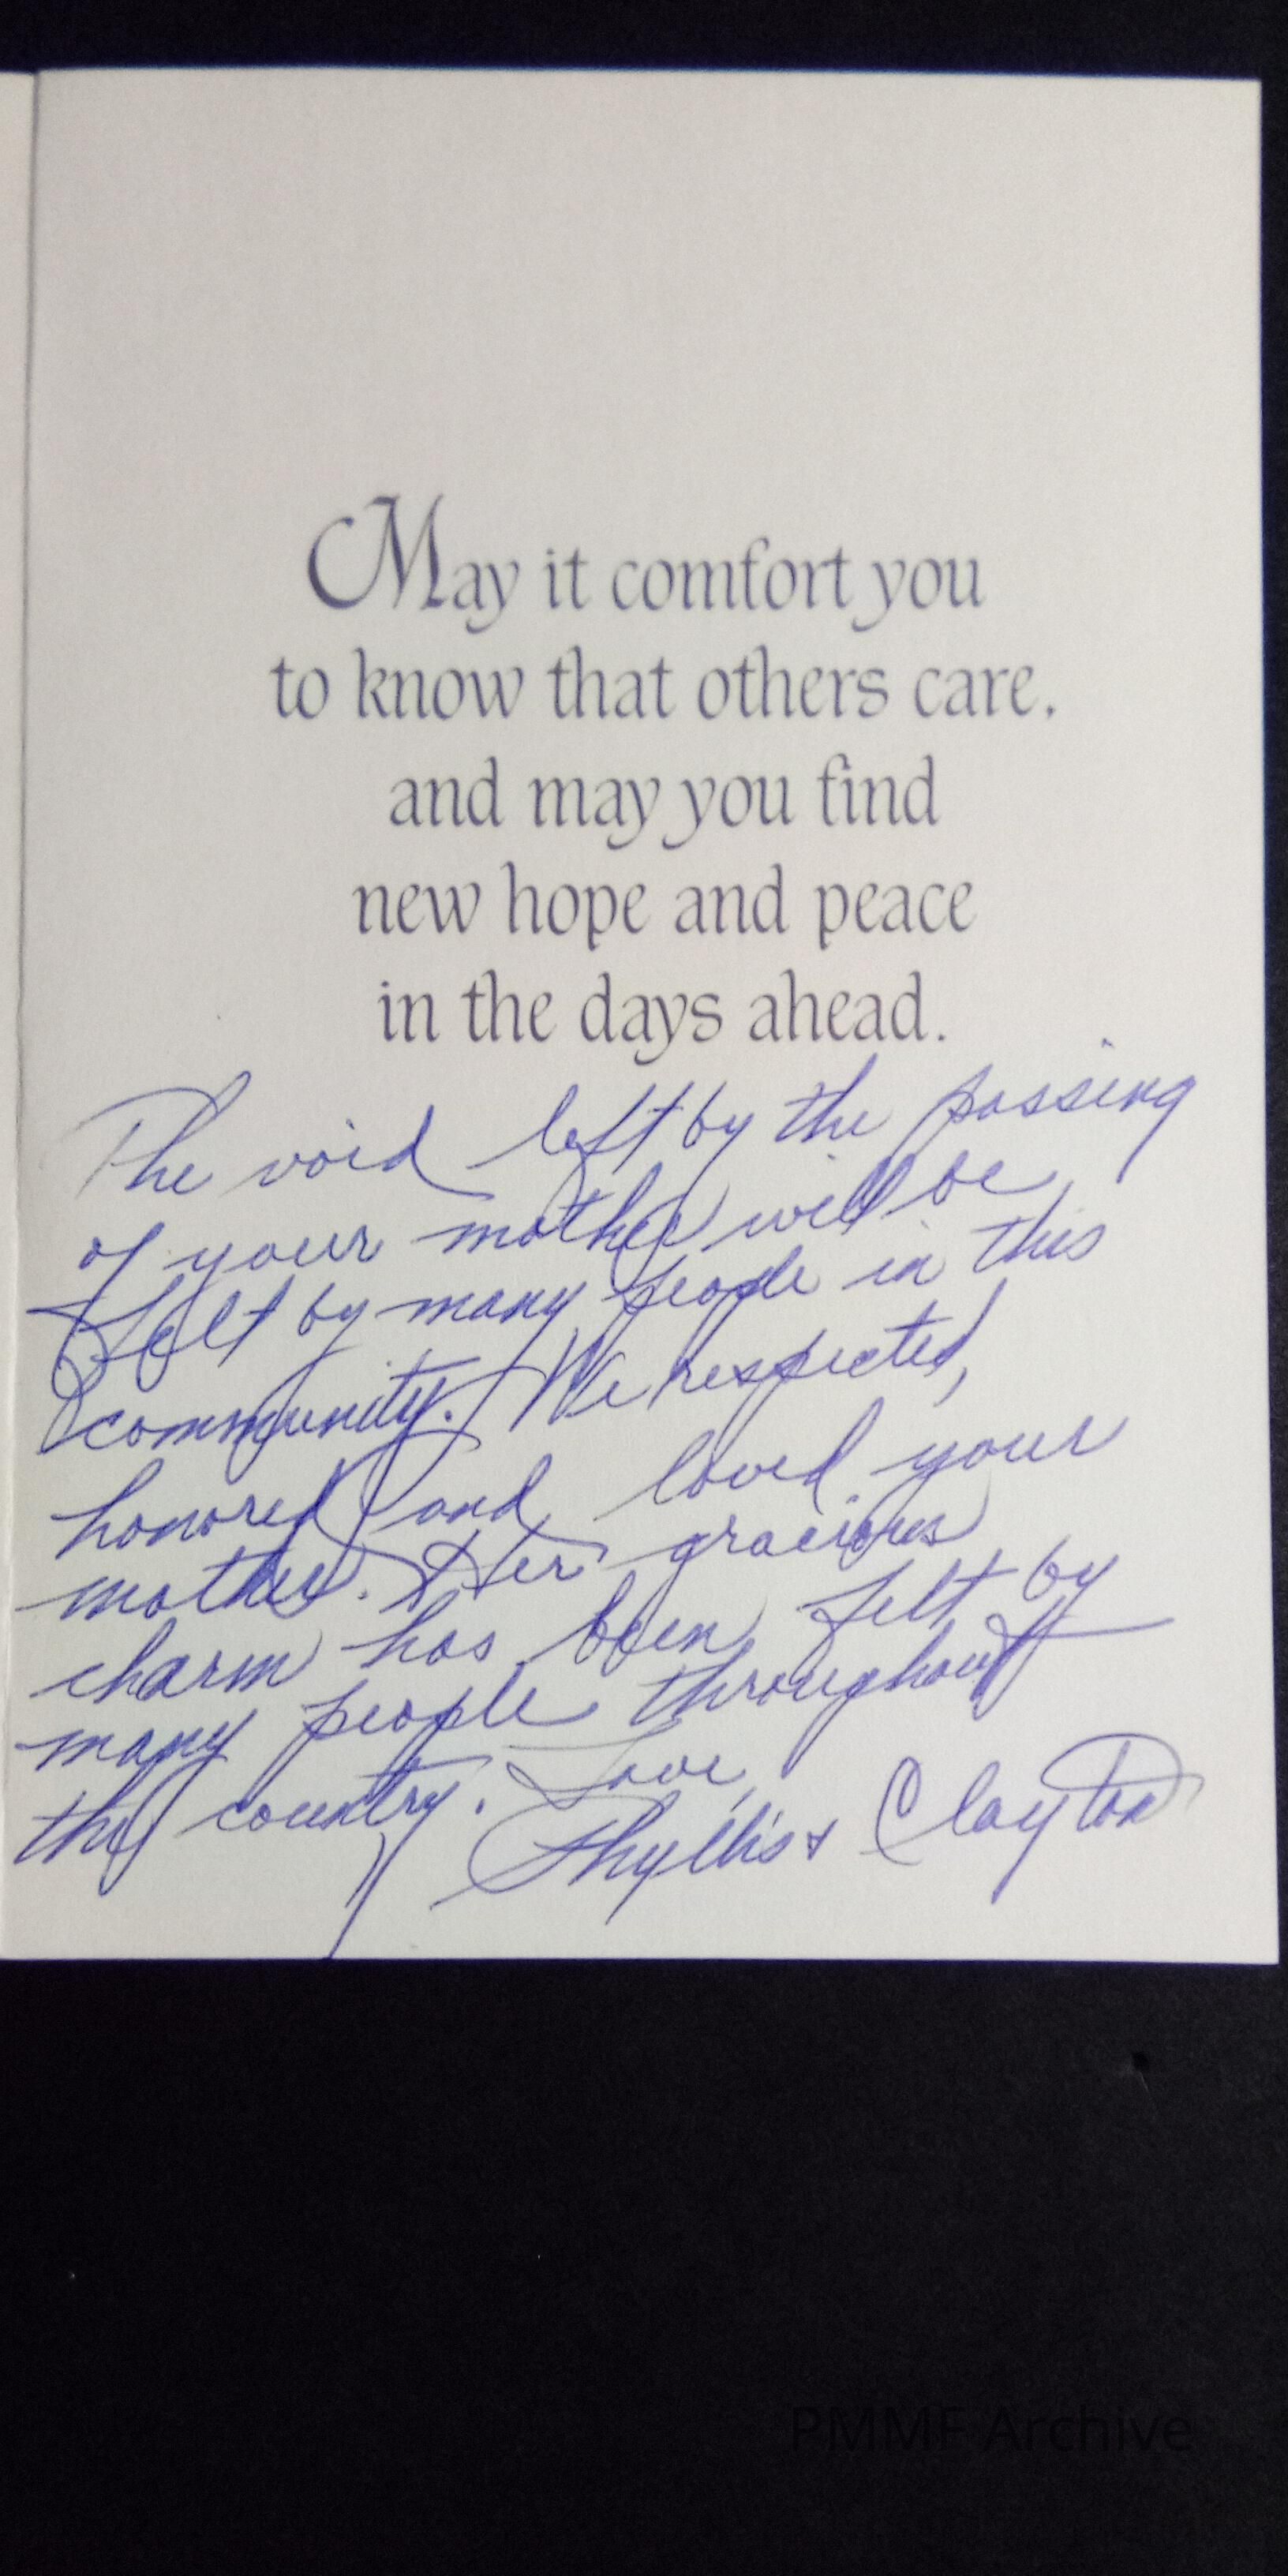 May it comfort you
to know that others care,
and may you find
new hope and peace
in the days ahead.
The void left by the passing
of your mother will be
felt by many people in this
community. We respected,
honored and loved your
mother. Her gracious
charm has been felt by
many people throughout
the country. Love,
Phyllis & Clayton
PMMF Archive